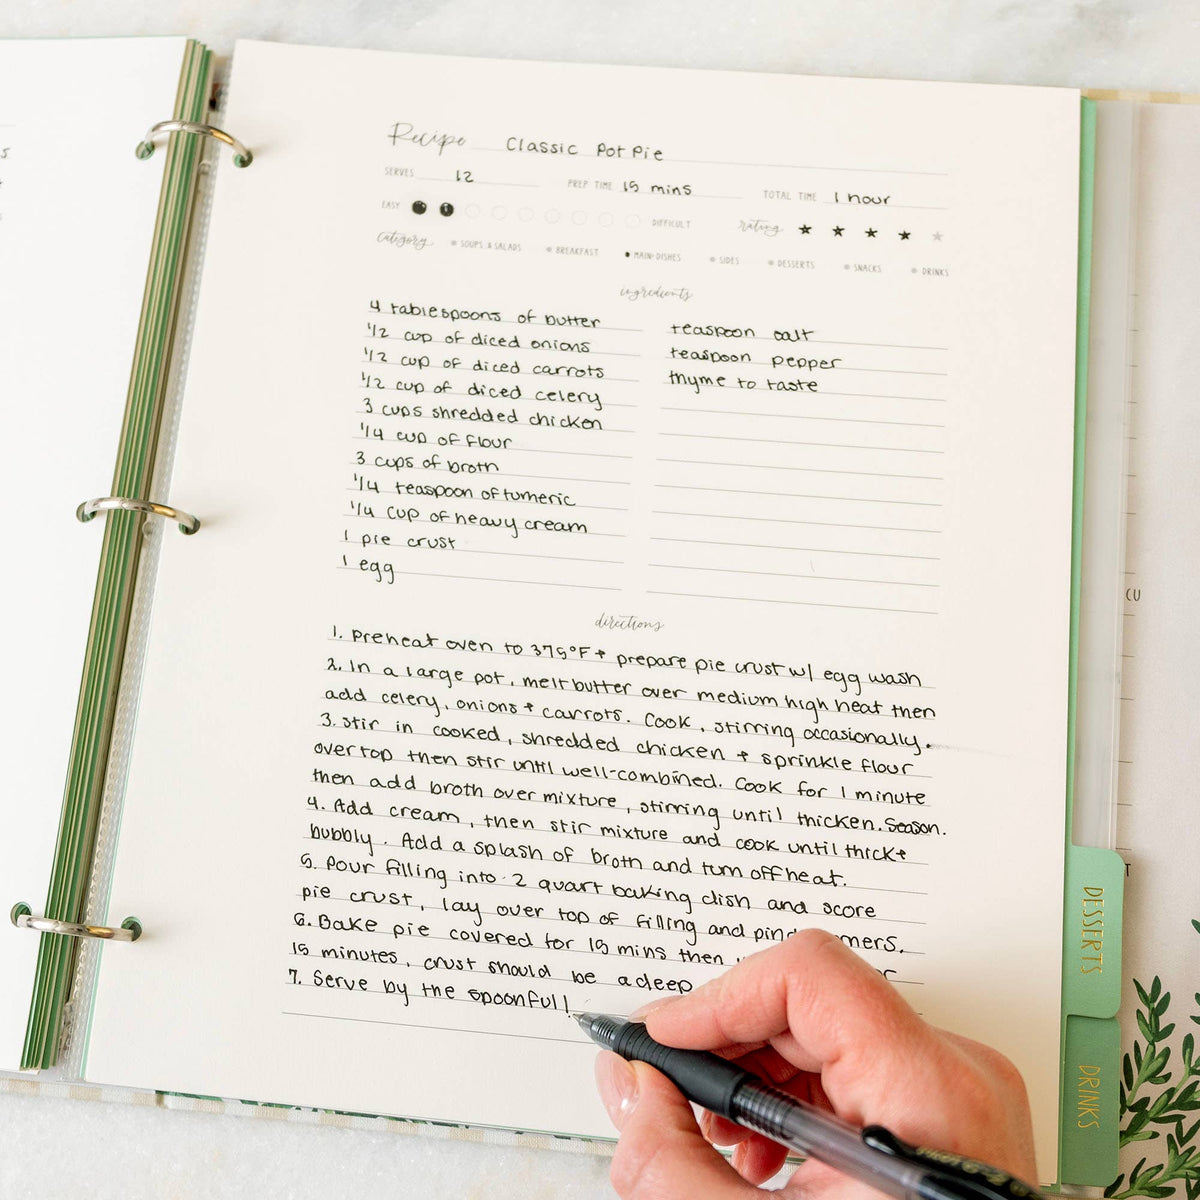 Recipe Classic Pot Pie
SERVES 12 PREP TIME 15 mins TOTAL TIME 1 hour
EASY DIFFICULT rating
category SOUPS & SALADS BREAKFAST MAIN-DISHES SIDES DESSERTS SNACKS DRINKS
ingredients
4 tablespoons of butter
1/2 cup of diced onions
1/2 cup of diced carrots
1/2 cup of diced celery
3 cups shredded chicken
1/4 cup of flour
3 cups of broth
1/4 teaspoon of tumeric
1/4 cup of heavy cream
1 pie crust
1 egg
teaspoon salt
teaspoon pepper
thyme to taste
directions
1. Preheat oven to 375°F + prepare pie crust w/ egg wash
2. In a large pot, melt butter over medium high heat then
add celery, onions + carrots. Cook, stirring occasionally.
3. Stir in cooked, shredded chicken + sprinkle flour
over top then stir until well-combined. Cook for 1 minute
then add broth over mixture, stirring until thicken. Season.
4. Add cream, then stir mixture and cook until thick +
bubbly. Add a splash of broth and turn off heat.
5. Pour filling into 2 quart baking dish and score
pie crust, lay over top of filling and
6. Bake pie covered for 15 mins then
15 minutes, crust should be a deep
7. Serve by the spoonful!
DESSERTS
DRINKS
CU
T